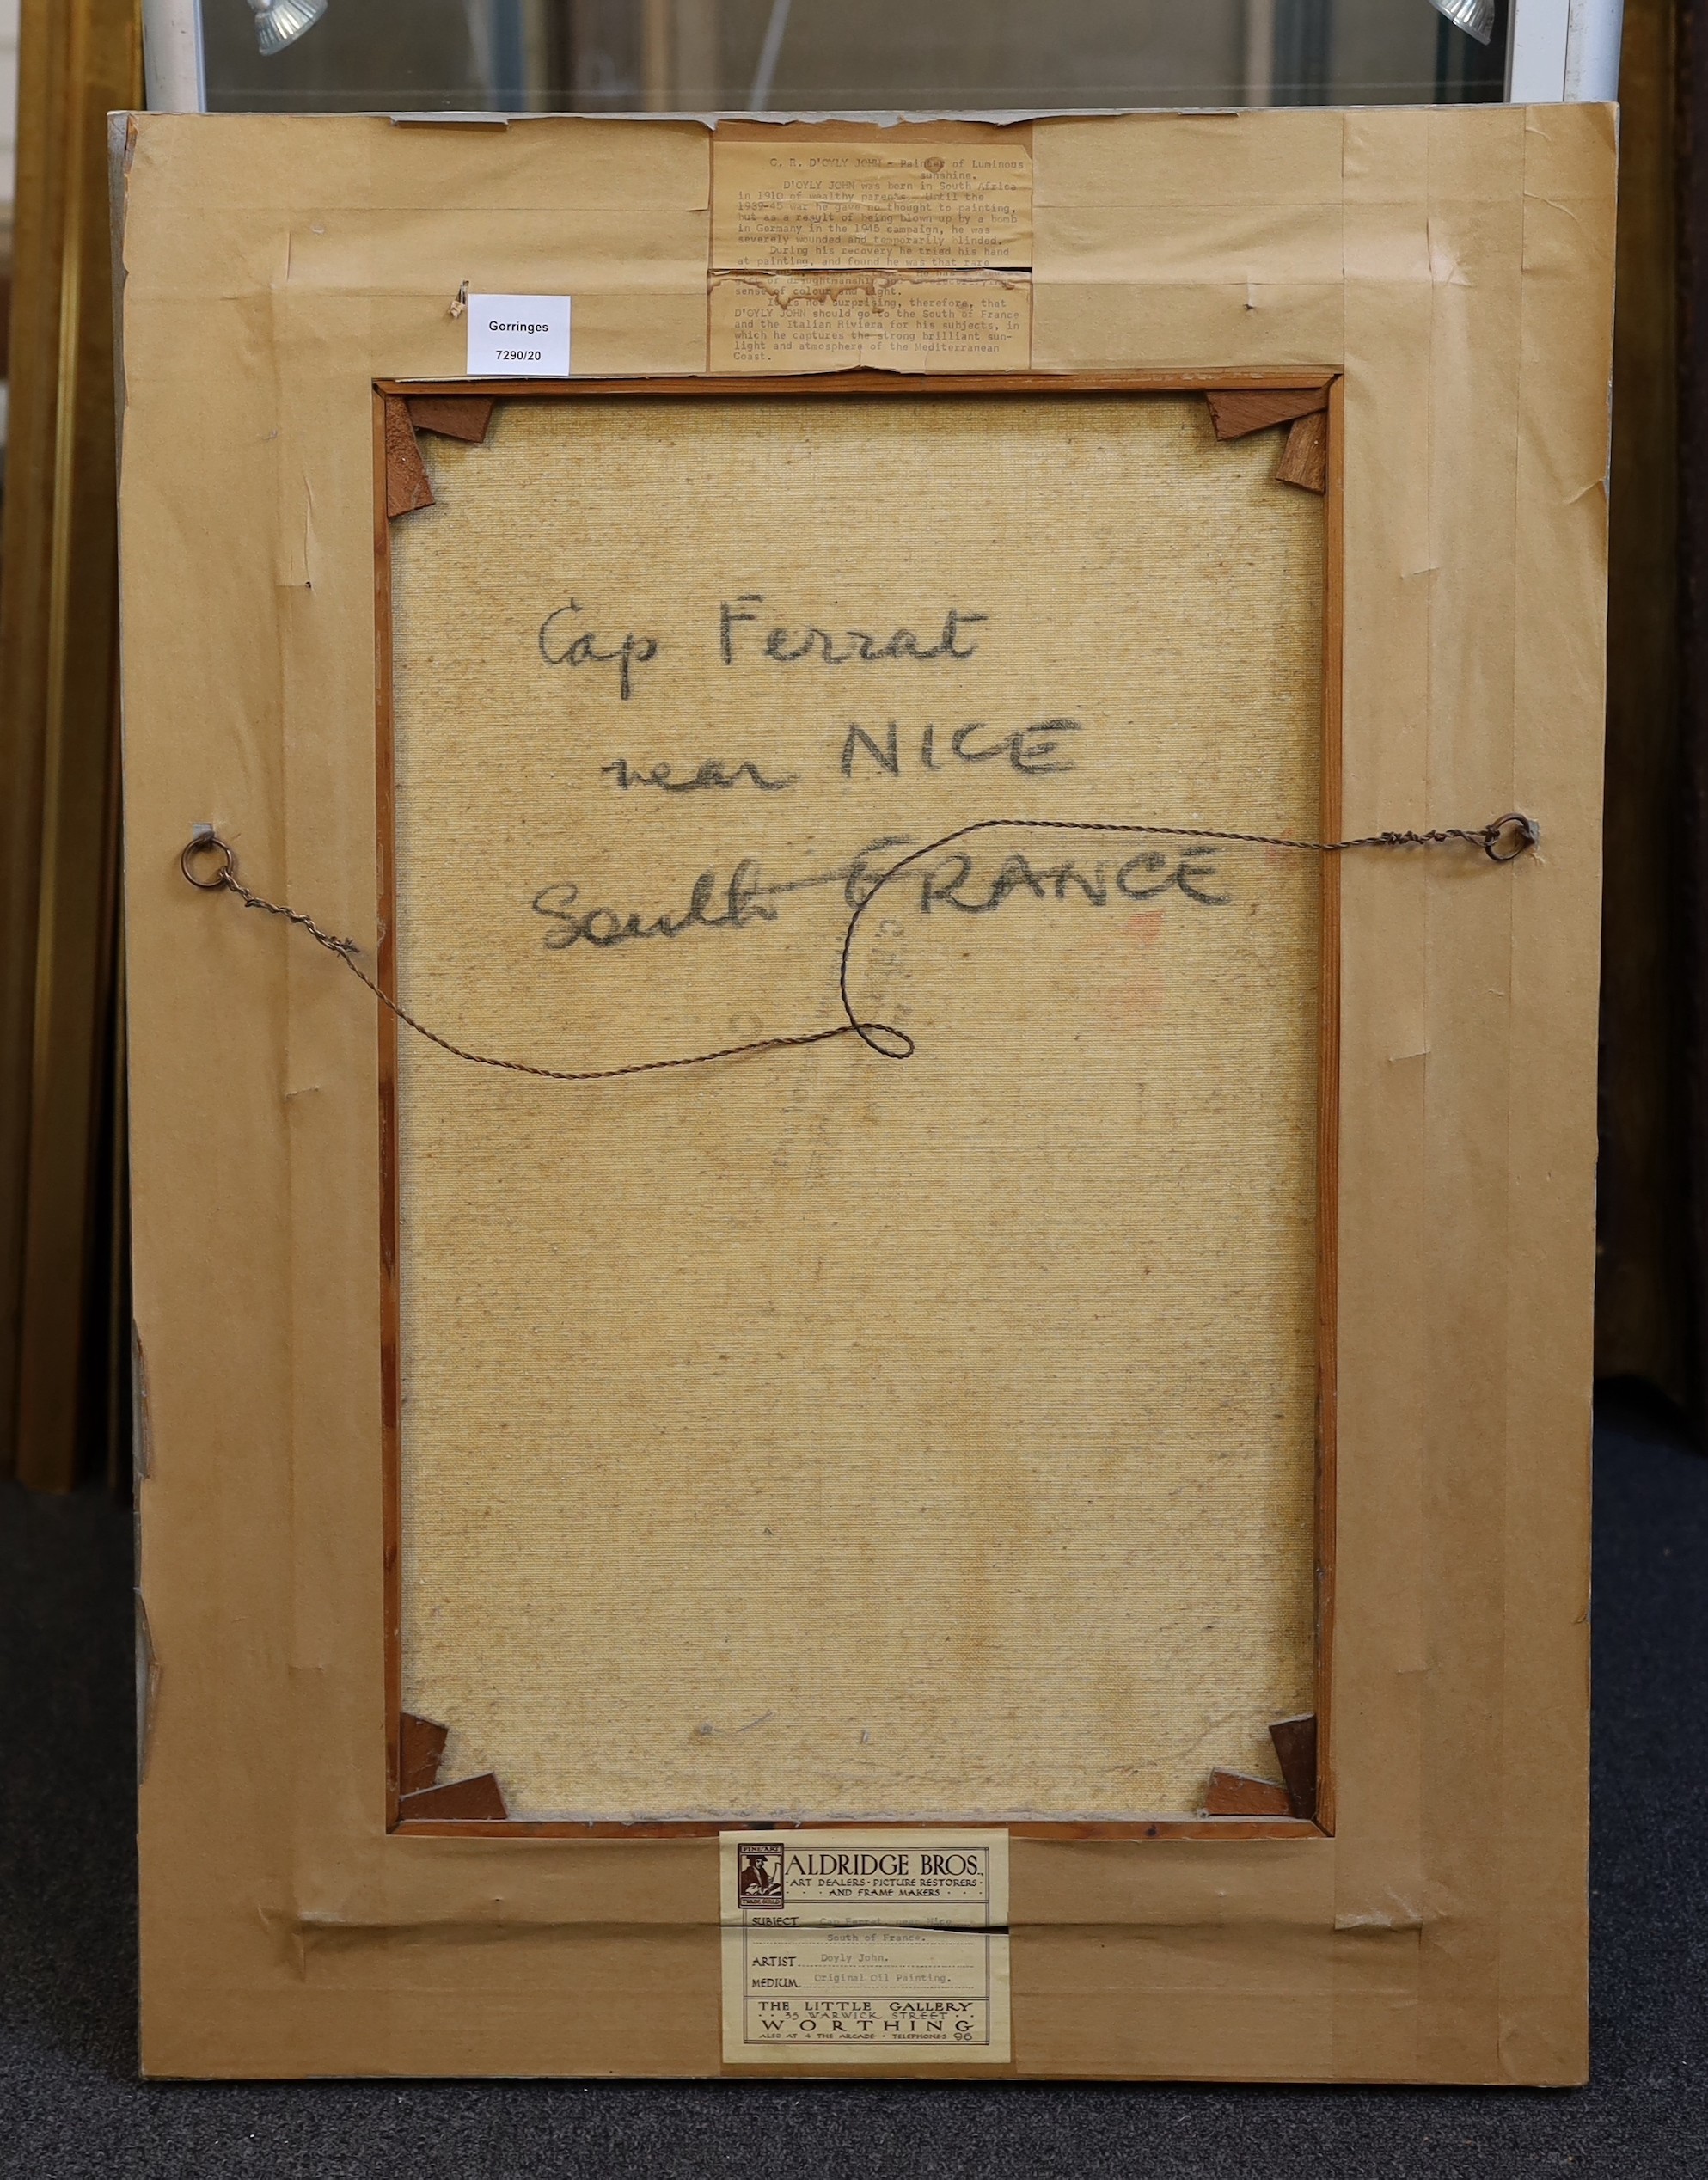 C. R. D'OYLY JOHN - Painter of Luminous
sunshine.
D'OYLY JOHN was born in South Africa
in 1910 of wealthy parents. Until the
1939-45 war he gave no thought to painting,
but as a result of being blown up by a bomb
in Germany in the 1945 campaign, he was
severely wounded and temporarily blinded.
During his recovery he tried his hand
at painting, and found he was that rare
gift of draughtmanship
sense of colour and light.
It is not surprising, therefore, that
D'OYLY JOHN should go to the South of France
and the Italian Riviera for his subjects, in
which he captures the strong brilliant sun-
light and atmosphere of the Mediterranean
Coast.
Gorringes
7290/20
Cap Ferrat
near NICE
South FRANCE
FINE ART
TRADE GUILD
ALDRIDGE BROS.,
ART DEALERS · PICTURE RESTORERS ·
· · · AND FRAME MAKERS · · ·
SUBJECT Cap Ferrat near Nice
South of France.
ARTIST Doyly John.
MEDIUM Original Oil Painting.
THE LITTLE GALLERY
· · 35 WARWICK STREET · ·
WORTHING
ALSO AT 4 THE ARCADE · TELEPHONES 96